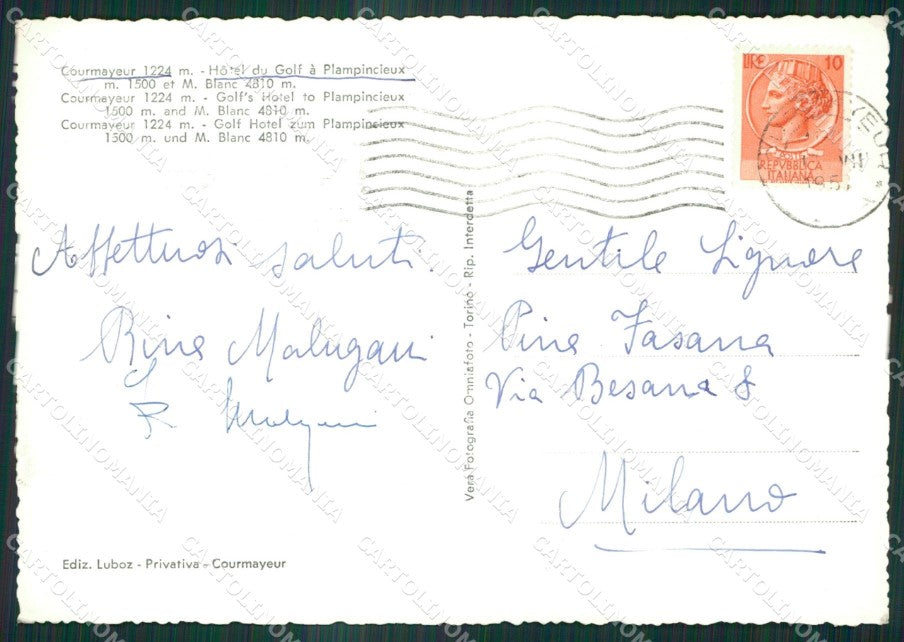 Courmayeur 1224 m. - Hôtel du Golf à Plampincieux
m. 1500 et M. Blanc 4810 m.
Courmayeur 1224 m. - Golf's Hotel to Plampincieux
1500 m. and M. Blanc 4810 m.
Courmayeur 1224 m. - Golf Hotel zum Plampincieux
1500 m. und M. Blanc 4810 m.
Affettuosi saluti.
Rina Malugani
Ediz. Luboz - Privativa - Courmayeur
Vera Fotografia Omniafoto - Torino - Rip. Interdetta
LIRE 10
POSTE
REPVBBLICA
ITALIANA
Gentile Signora
Pina Fasana
Via Besana 8
Milano
CARTOLINOMANIA